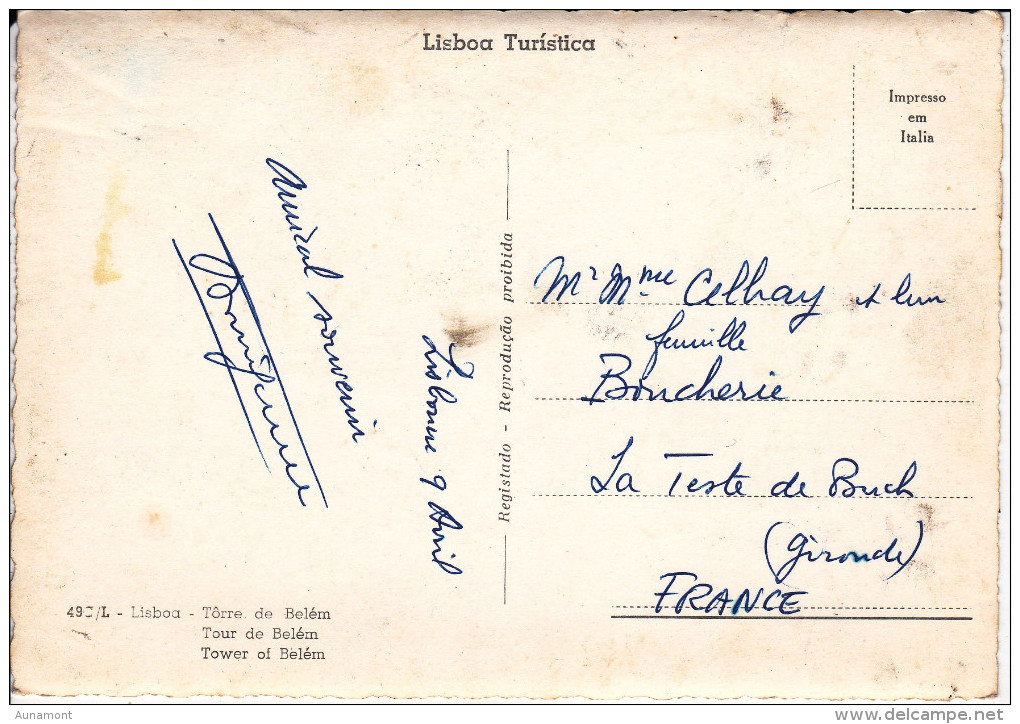 Lisboa Turística
Impresso
em
Italia
Amical souvenir
Lisbonne 9 Avril
Registado - Reprodução proibida
Mr Mme Celhay et leur
famille
Boucherie
La Teste de Buch
(Gironde)
FRANCE
/L - Lisboa - Tôrre de Belém
Tour de Belém
Tower of Belém
Aunamont
www.delcampe.net